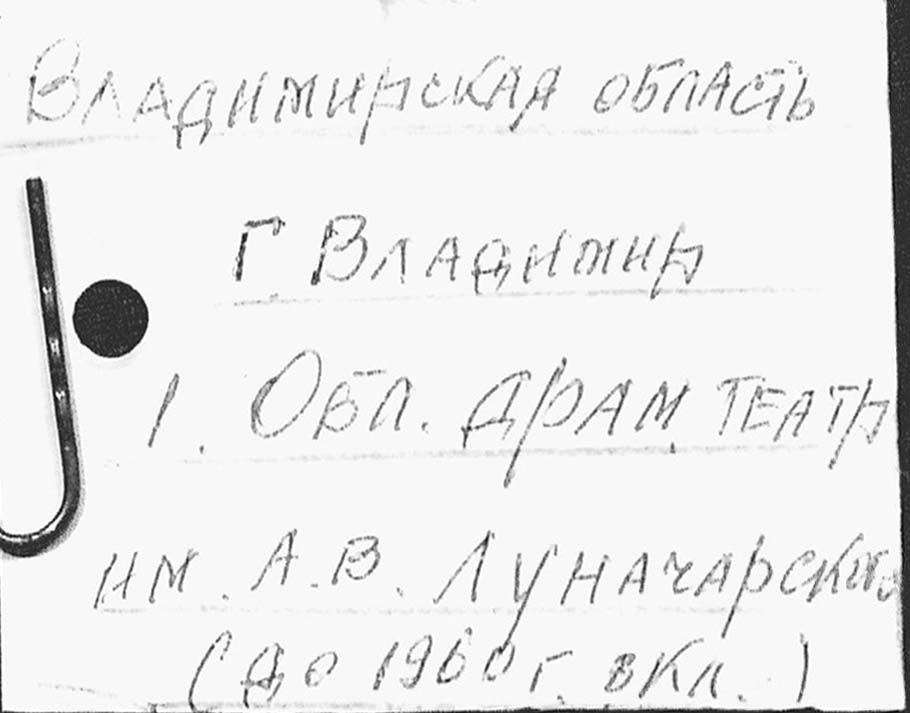 Владимирская область
г. Владимир
1. Обл. драм. театр
им. А.В. Луначарского
(до 1960 г. вкл.)